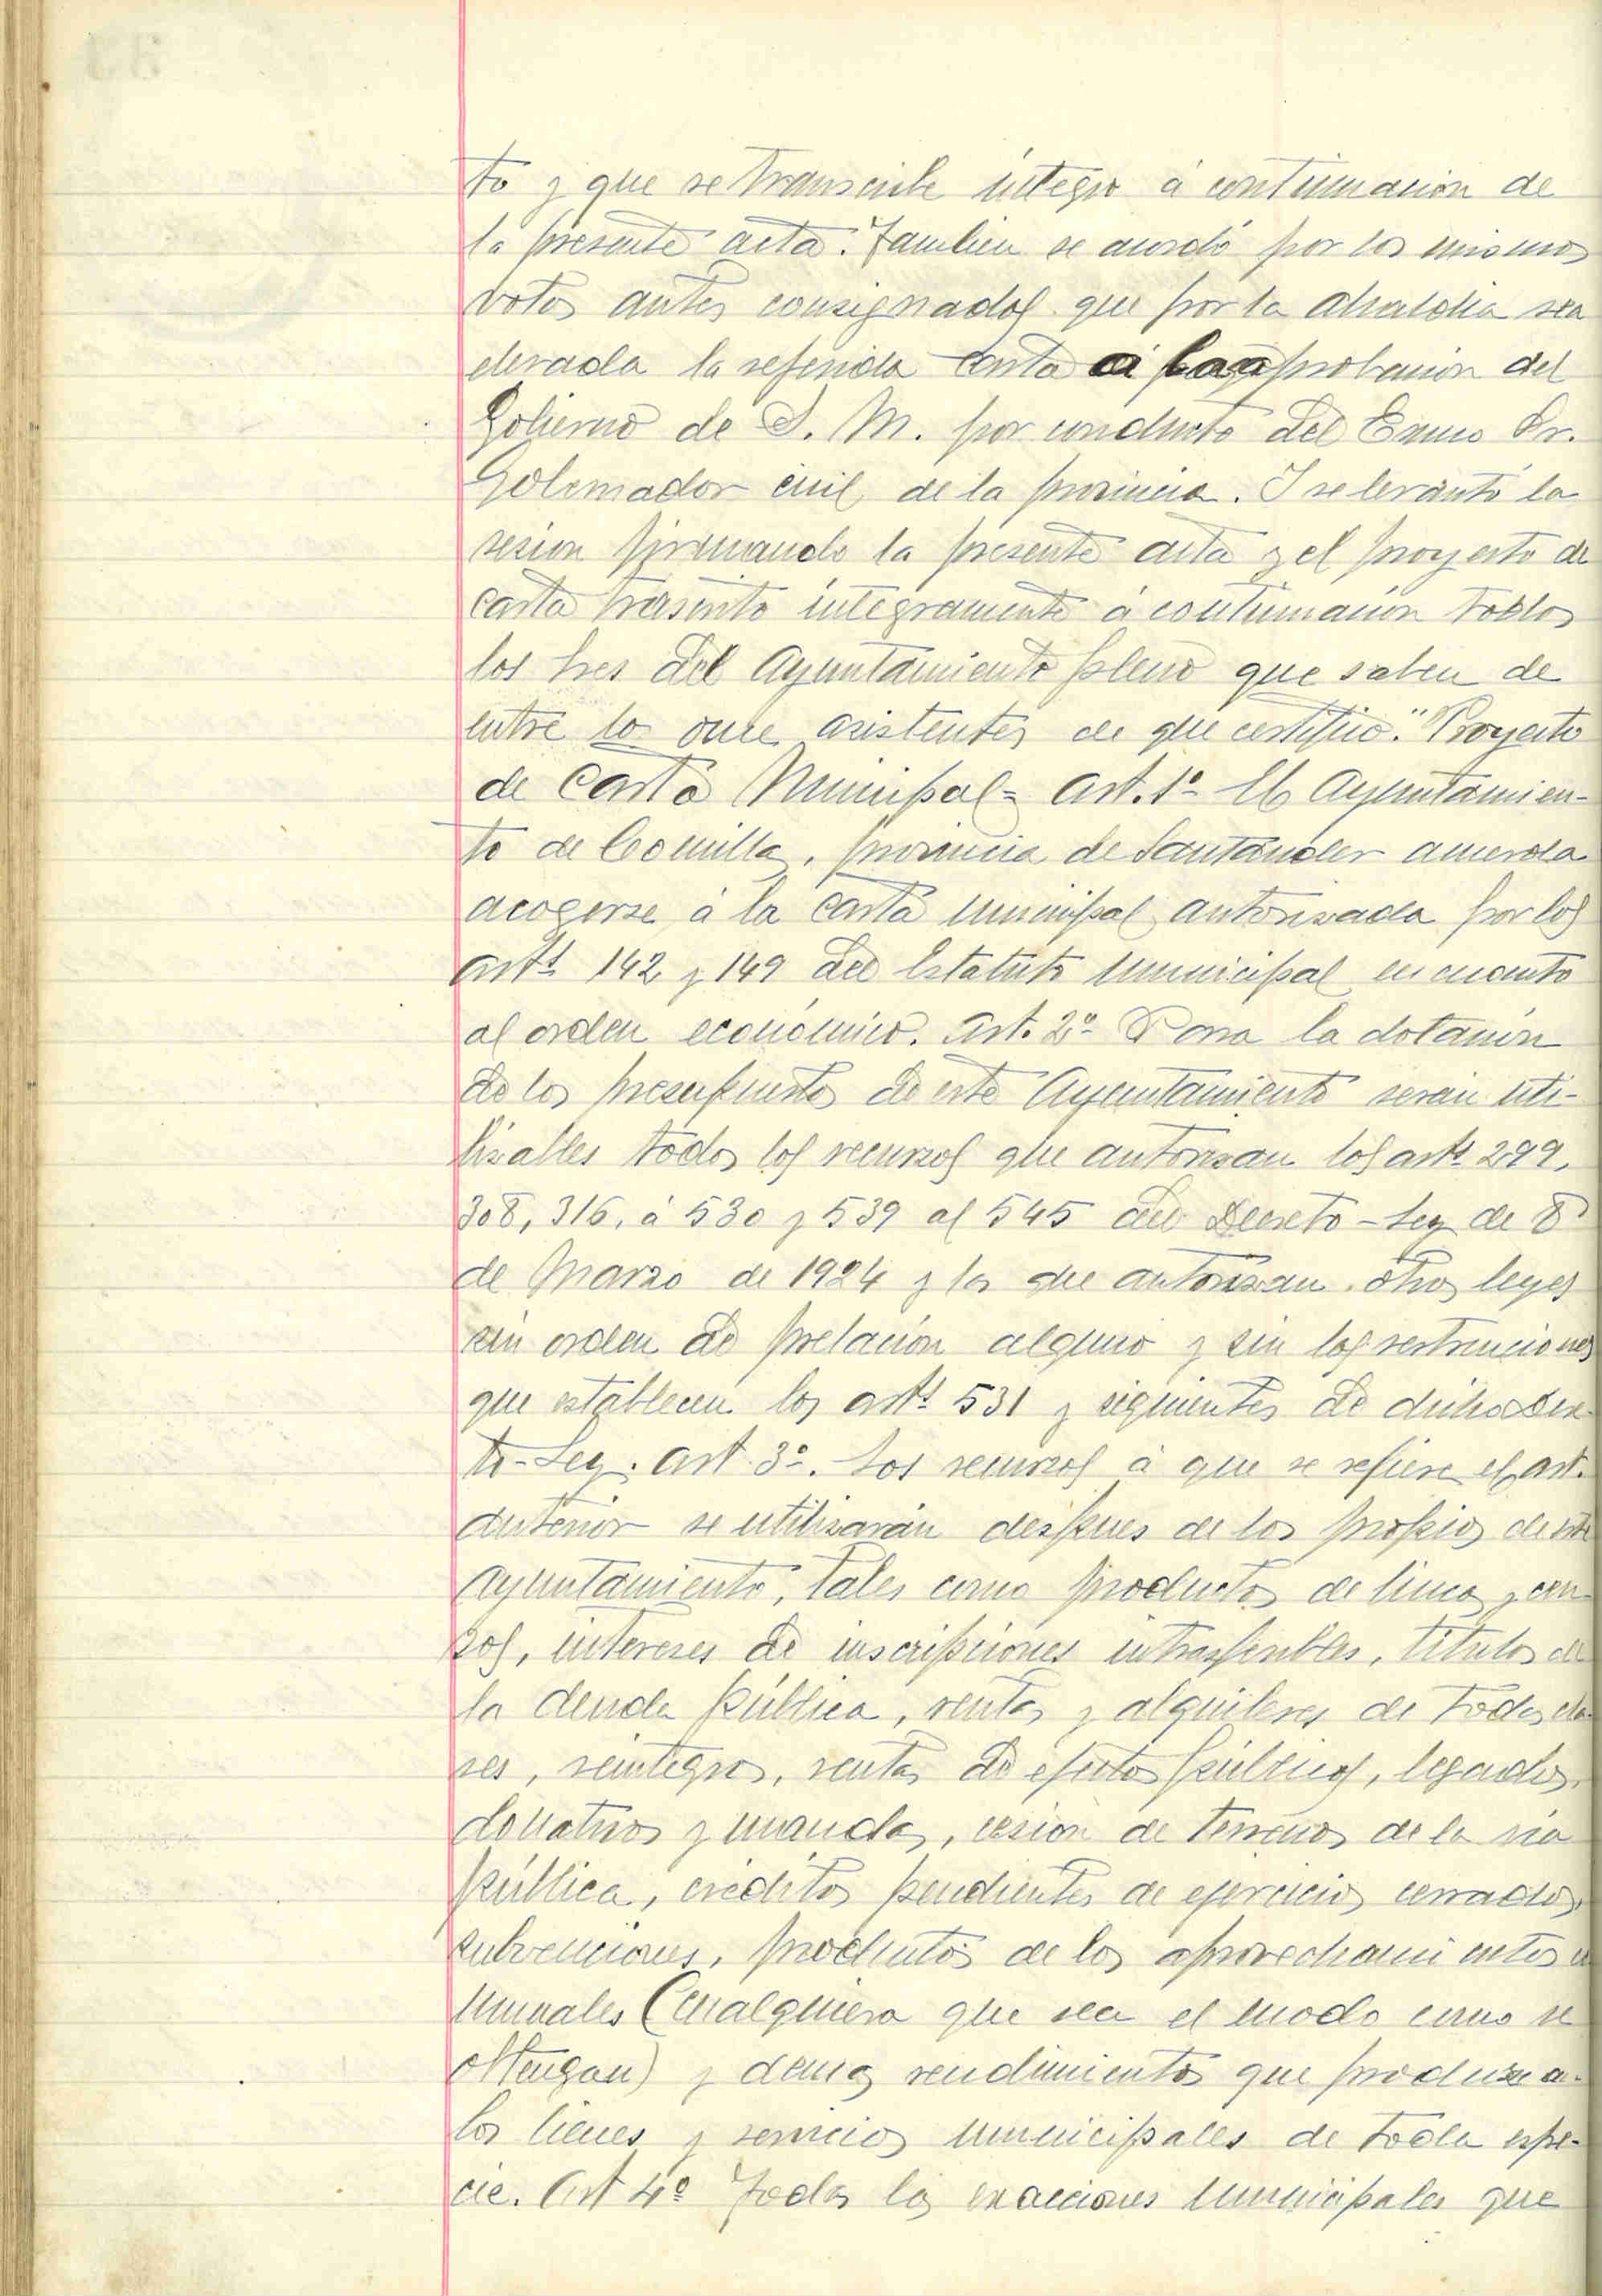 to y que se transcribe íntegro á continuación de
la presente acta. Tambien se acordó por los mismos
votos antes consignados que por la Alcaldia sea
elevada la referida Carta á la aprobación del
Gobierno de S. M. por conducto del Excmo Sr.
Gobernador civil de la provincia. Y se levantó la
sesion firmando la presente acta y el proyecto de
carta trascrito integramente á continuación todos
los Sres del Ayuntamiento pleno que saben de
entre los once asistentes de que certifico." Proyecto
de Carta Municipal = Art. 1º El Ayuntamien-
to de Comillas, provincia de Santander acuerda
acogerse á la Carta municipal autorizada por los
artˢ 142 y 149 del Estatuto Municipal en cuanto
al orden económico. Art. 2º Para la dotación
de los presupuestos de este Ayuntamiento serán uti-
lizables todos los recursos que autorizan los artˢ 299,
308, 316, á 530 y 539 al 545 del Decreto-Ley de 8
de Marzo de 1924 y los que autorizan otras leyes
sin orden de prelación alguno y sin las restricciones
que establecen los artˢ 531 y siguientes de dicho Decre-
to-Ley. Art. 3º. Los recursos á que se refiere el art.
anterior se utilizarán despues de los propios de este
Ayuntamiento, tales como productos de fincas y cen-
sos, intereses de inscripciones intrasferibles, titulos de
la deuda pública, rentas y alquileres de todas cla-
ses, reintegros, rentas de efectos públicos, legados,
donativos y mandas, cesion de terrenos de la via
pública, creditos pendientes de ejercicios cerrados,
subvenciones, productos de los aprovechamientos co
munales (cualquiera que sea el modo como se
obtengan) y demas rendimientos que produzcan
los bienes y servicios municipales de toda espe-
cie. Art 4º Todas las exacciones municipales que